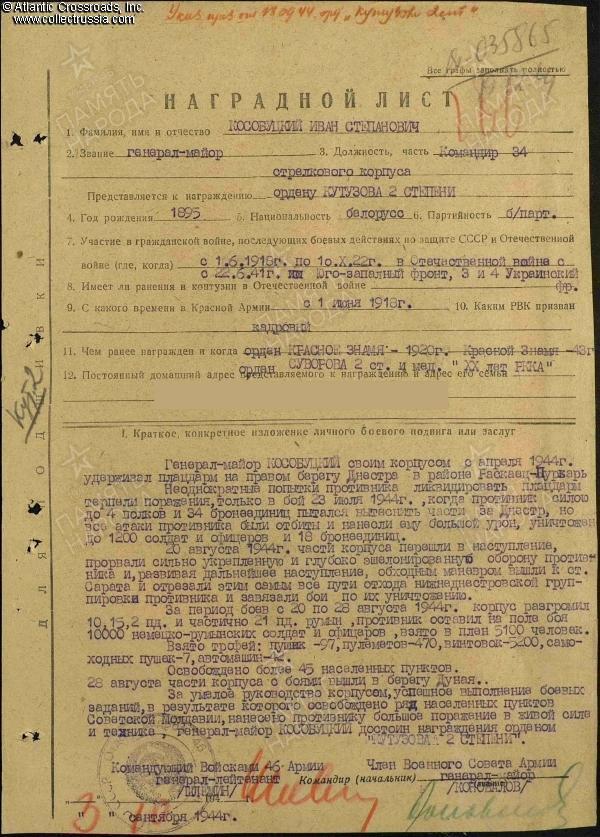 © Atlantic Crossroads, Inc.
www.collectrussia.com
Все графы заполнять полностью
НАГРАДНОЙ ЛИСТ
1. Фамилия, имя и отчество КОСОБУЦКИЙ ИВАН СТЕПАНОВИЧ
2. Звание генерал-майор 3. Должность, часть Командир 34
стрелкового корпуса
Представляется к награждению ордену КУТУЗОВА 2 СТЕПЕНИ
4. Год рождения 1895 5. Национальность белорусс 6. Партийность б/парт.
7. Участие в гражданской войне, последующих боевых действиях по защите СССР и Отечественной
войне (где, когда) с 1.6.1918г. по 1о.X.22г. в Отечественной войне с
с 22.6.41г. Юго-запалный фронт, 3 и 4 Украинский
фр.
8. Имеет ли ранения и контузии в Отечественной войне
9. С какого времени в Красной Армии с 1 июня 1918г. 10. Каким РВК призван
кадровий
11. Чем ранее награжден и когда ордан КРАСНОЕ ЗНАМЯ - 1920г. Красной Знамя -43г
ордан СУВОРОВА 2 ст. и мед. "XX лет РККА"
12. Постоянный домашний адрес представляемого к награждению и адрес его семьи
I. Краткое, конкретное изложение личного боевого подвига или заслуг
Генерал-майор КОСОБУЦКИЙ своим корпусом с апреля 1944г.
удерживал плацдарм на правом берегу Днестра в районе Раскаец-Пуркарь
Неоднократные попытки противника ликвидировать плацдарм
терпели поражения, только в бой 23 июля 1944г., когда противник силою
до 4 полков и 34 бронеединиц пытался вытеснить части за Днестр, но
все атаки противника были отбиты и нанесли ему большой урон, уничтожен
до 1200 солдат и офицеров и 18 бронеединиц.
20 августа 1944г. части корпуса перешли в наступление,
прорвали сильно укрепленную и глубоко эшелонированную оборону против-
ника и, развивая дальнейшее наступление, обходным маневром вышли к ст.
Сарата и отрезали этим самым все пути отхода нижнеднестровской груп-
пировки противника и завязали бои по их уничтожению.
За период боев с 20 по 28 августа 1944г. корпус разгромил
10,15,2 пд. и частично 21 пд. румын, противник оставил на поле боя
10000 немецко-румынских солдат и офицеров, взято в плен 5100 человек.
Взято трофей: пушик -97, пулеметов-470, винтовок-5200, само-
ходных пушек-7, автомашин-42.
Освобождено более 45 населенных пунктов.
28 августа части корпуса с боями вышли в берегу Дуная..
За умалое руководство корпусом, успешное выполнение боевых
заданий, в результате которого освобождено ряд населенных пунктов
Советской Молдавии, нанесено противнику большое поражение в живой силе
и технике, генерал-майор КОСОБУЦКИЙ достоин награждения орденом
"КУТУЗОВА 2 СТЕПЕНИ".
Командующий Войсками 46 Армии
генерал-лейтенант
/ШЛЕМИН/
Член Военного Совета Армии
генарал-майор
/КОНОВАЛОВ/
Командир (начальник)
" " сентября 1944г.